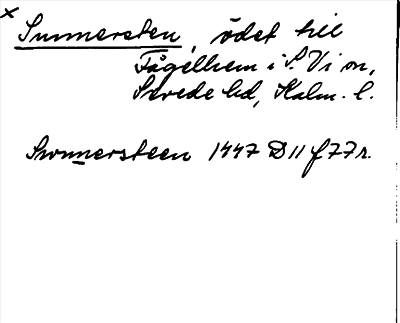 x
Sunnersten, ödet till
Fågelhem i S. Vi sn,
Sevede hd, Kalm. l.
Swnnersteen 1447 D 11 f 77 r.